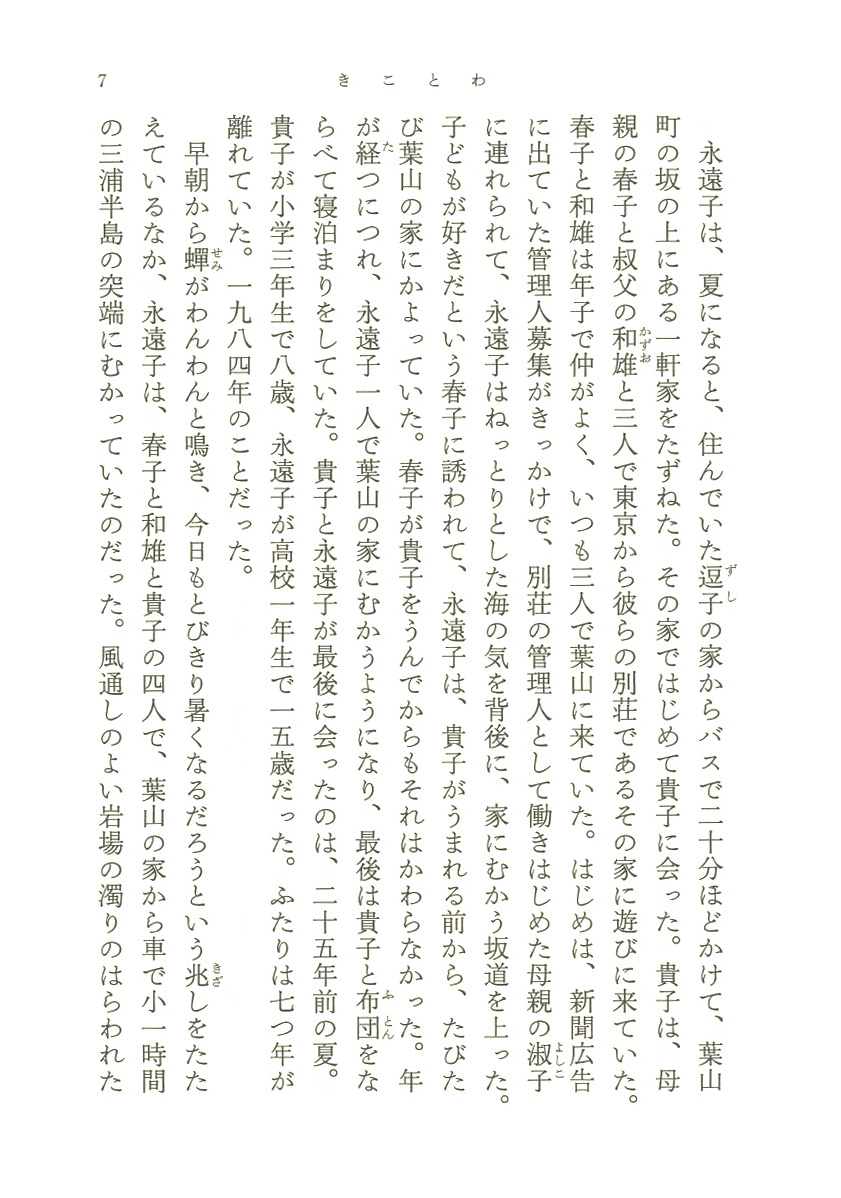 きことわ
7
永遠子は、夏になると、住んでいた逗子の家からバスで二十分ほどかけて、葉山
町の坂の上にある一軒家をたずねた。その家ではじめて貴子に会った。貴子は、母
親の春子と叔父の和雄と三人で東京から彼らの別荘であるその家に遊びに来ていた。
春子と和雄は年子で仲がよく、いつも三人で葉山に来ていた。はじめは、新聞広告
に出ていた管理人募集がきっかけで、別荘の管理人として働きはじめた母親の淑子
に連れられて、永遠子はねっとりとした海の気を背後に、家にむかう坂道を上った。
子どもが好きだという春子に誘われて、永遠子は、貴子がうまれる前から、たびた
び葉山の家にかよっていた。春子が貴子をうんでからもそれはかわらなかった。年
が経つにつれ、永遠子一人で葉山の家にむかうようになり、最後は貴子と布団をな
らべて寝泊まりをしていた。貴子と永遠子が最後に会ったのは、二十五年前の夏。
貴子が小学三年生で八歳、永遠子が高校一年生で一五歳だった。ふたりは七つ年が
離れていた。一九八四年のことだった。
早朝から蟬がわんわんと鳴き、今日もとびきり暑くなるだろうという兆しをたた
えているなか、永遠子は、春子と和雄と貴子の四人で、葉山の家から車で小一時間
の三浦半島の突端にむかっていたのだった。風通しのよい岩場の濁りのはらわれた